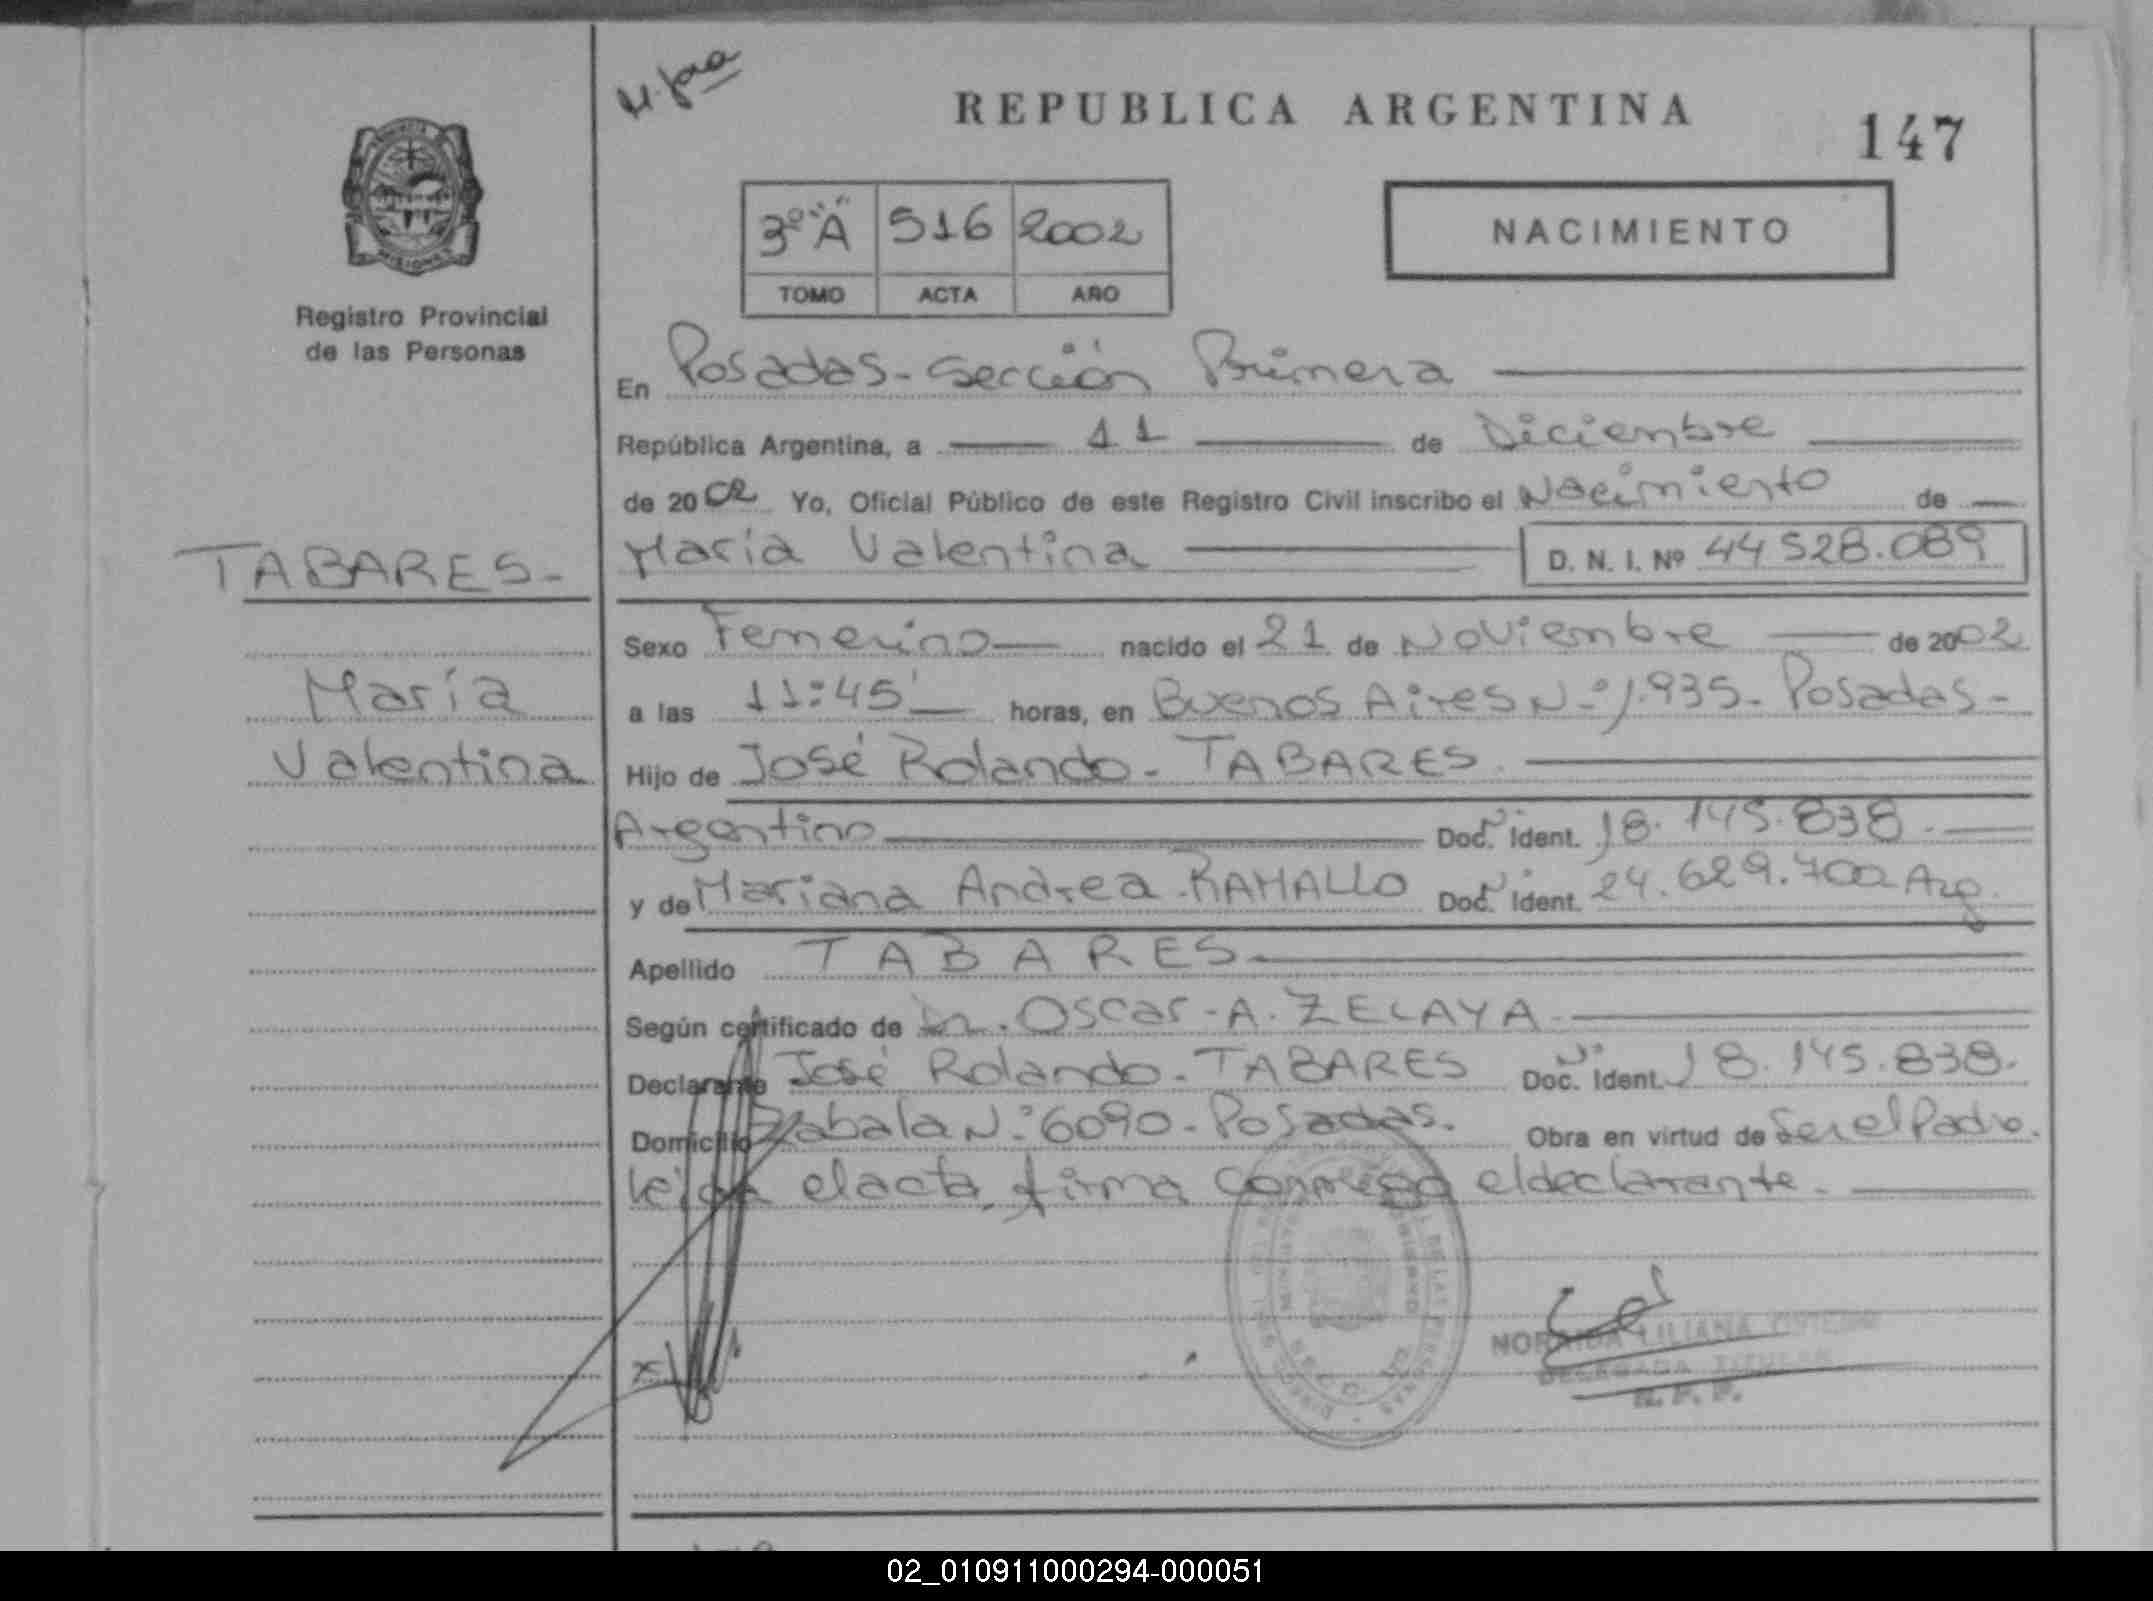 REPUBLICA ARGENTINA
147
3º "A" 516 2002
TOMO ACTA AÑO
NACIMIENTO
MISIONES
Registro Provincial
de las Personas
En Posadas - Sección Primera
República Argentina, a 11 de Diciembre
de 2002 Yo, Oficial Público de este Registro Civil inscribo el Nacimiento de
TABARES -
María Valentina D. N. I. Nº 44 528.089
Sexo Femenino nacido el 21 de Noviembre de 2002
María
a las 11:45' horas, en Buenos Aires N:º 1.935 - Posadas -
Valentina
Hijo de José Rolando - TABARES
Argentino Doc. Nº Ident. 18.145.838
y de Mariana Andrea RAMALLO Doc. Nº Ident. 24.629.700 Arg.
Apellido TABARES
Según certificado de Dr. Oscar - A. ZELAYA
Declarante José Rolando - TABARES Doc. Nº Ident. 18.145.838.
Domicilio Zabala N:º 6090 - Posadas. Obra en virtud de Ser el Padre.
Leida el acta, firma conmigo el declarante.
LILIANA
DELEGADA TITULAR
R. P. P.
02_010911000294-000051